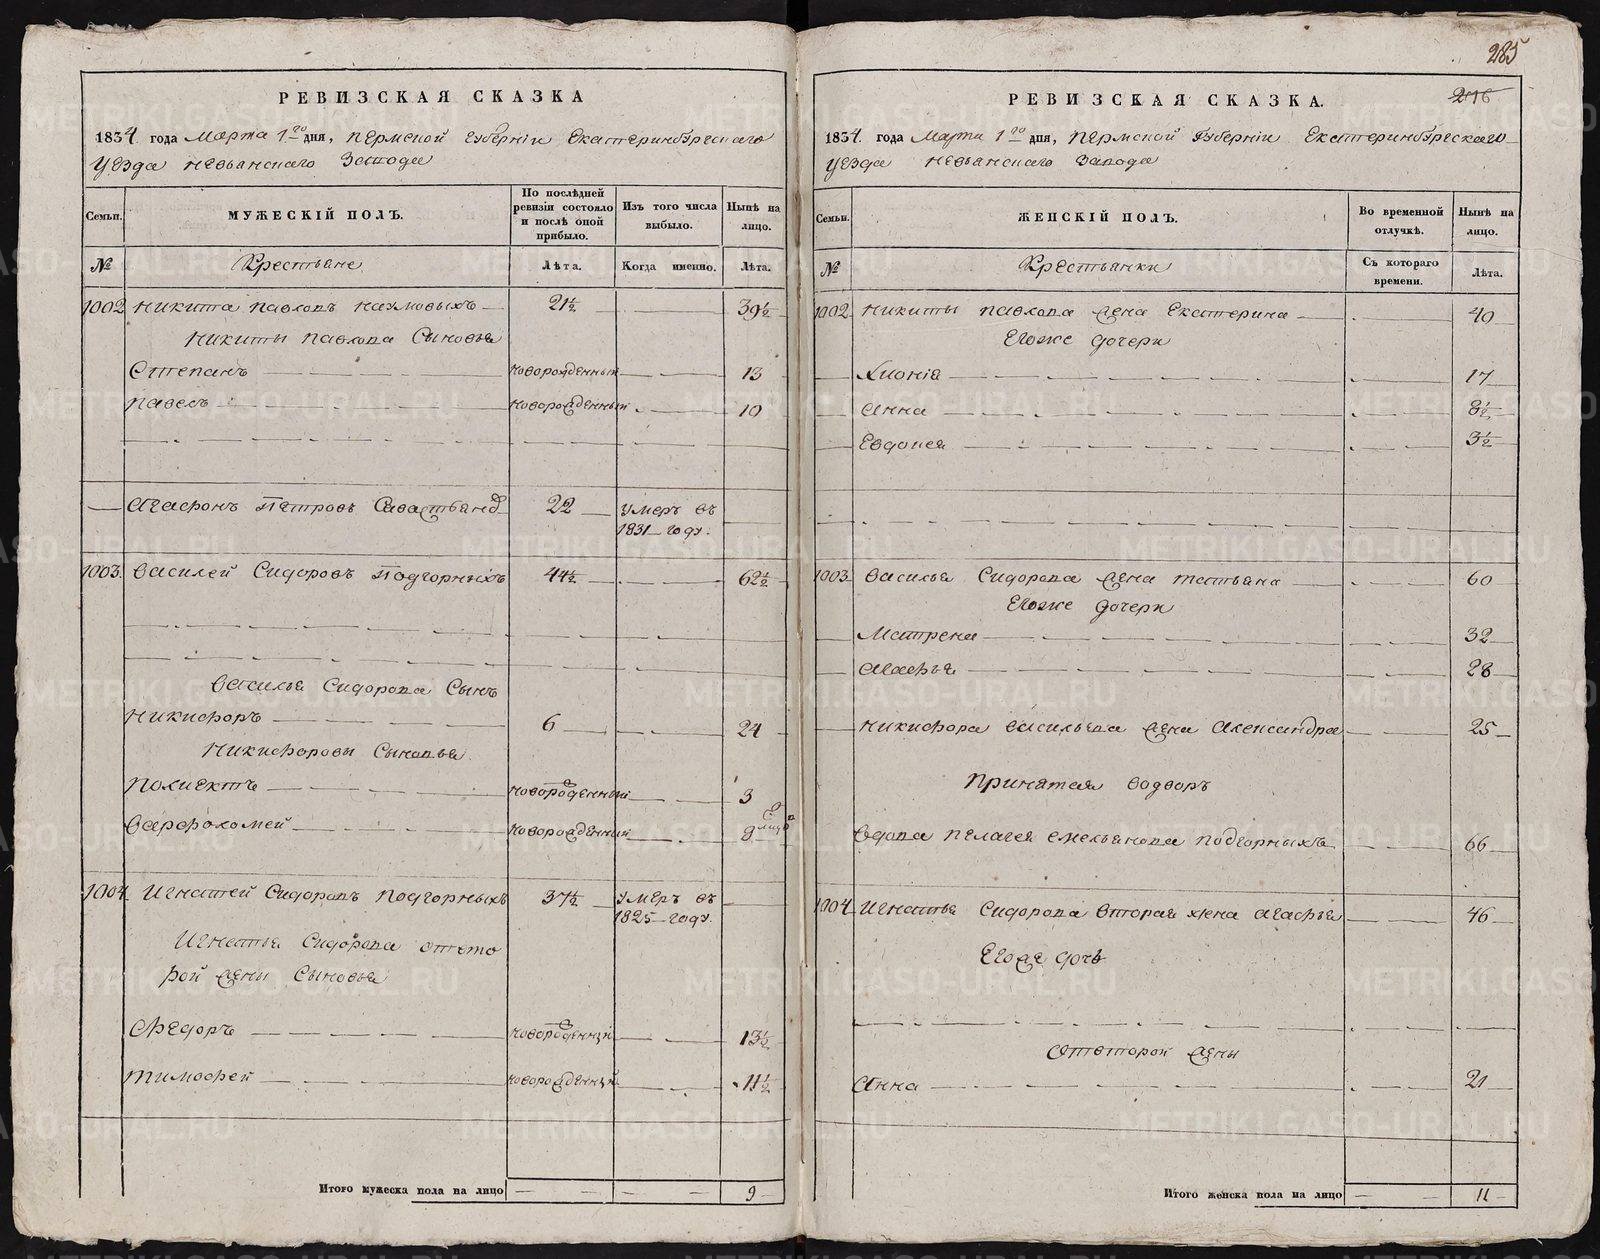 285
РЕВИЗСКАЯ СКАЗКА
1834 года Марта 1го дня, Пермской Губернiи Екатеринбургскаго
Уезда Невьянскаго Завода
Семьи.
МУЖЕСКIЙ ПОЛЪ.
По послѣдней ревизiи состояло и послѣ оной прибыло.
Изъ того числа выбыло.
Нынѣ на лицо.
№
Крестьяне
Лѣта.
Когда именно.
Лѣта.
1002 Никита Павловъ Наумовыхъ 21½ 39½
Никиты Павлова Сыновья
Степанъ новорожденный 13
Павелъ новорожденный 10
Агафонъ Петровъ 22 умеръ въ
1831 году.
1003 Василей Сидоровъ Подгорныхъ 44½ 62½
Василья Сидорова Сынъ
Никифоръ 6 24
Никифоровы Сыновья
Полиектъ новорожденный 3
Варфоломей новорожденный
1004 Игнатей Сидоровъ Подгорныхъ 37½ умеръ въ
1825 году.
Игнатья Сидорова отвто
рой жены Сыновья
Федоръ новорожденный 13½
Тимофей новорожденный 11½
Итого мужеска пола на лицо 9
РЕВИЗСКАЯ СКАЗКА.
216
1834 года Марта 1го дня, Пермской Губернiи Екатеринбургскаго
Уезда Невьянскаго Завода
Семьи.
ЖЕНСКIЙ ПОЛЪ.
Во временной отлучкѣ.
Нынѣ на лицо.
№
Крестьянки
Съ котораго времени.
Лѣта.
1002 Никиты Павлова жена Екатерина 40
Егоже дочери
Хионiя 17
Анна 8½
Евдокея 3½
1003 Василья Сидорова жена Татьяна 60
Егоже дочери
Матрена 32
Агафья 28
Никифора Васильева жена Александра 25
Принятая водворъ
Вдова Пелагея Емельянова Подгорныхъ 66
1004 Игнатья Сидорова вторая жена Агафья 46
Егоже дочь
отвторой жены
Анна 21
Итого женска пола на лицо 11
METRIKI.GASO-URAL.RU